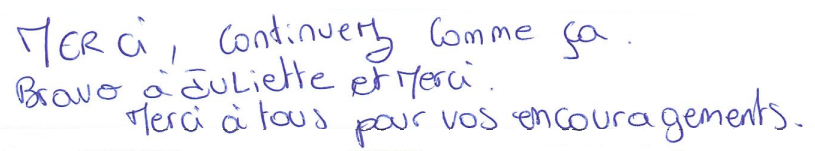 MERCi, Continuerz Comme ça.
Bravo à JuLiette et Merci.
Merci à tous pour vos encouragements.